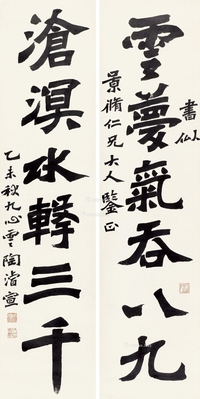 雲夢氣吞八九
書似
景脩仁兄大人鑒正
滄溟水擊三千
乙未秋九心雲陶濬宣